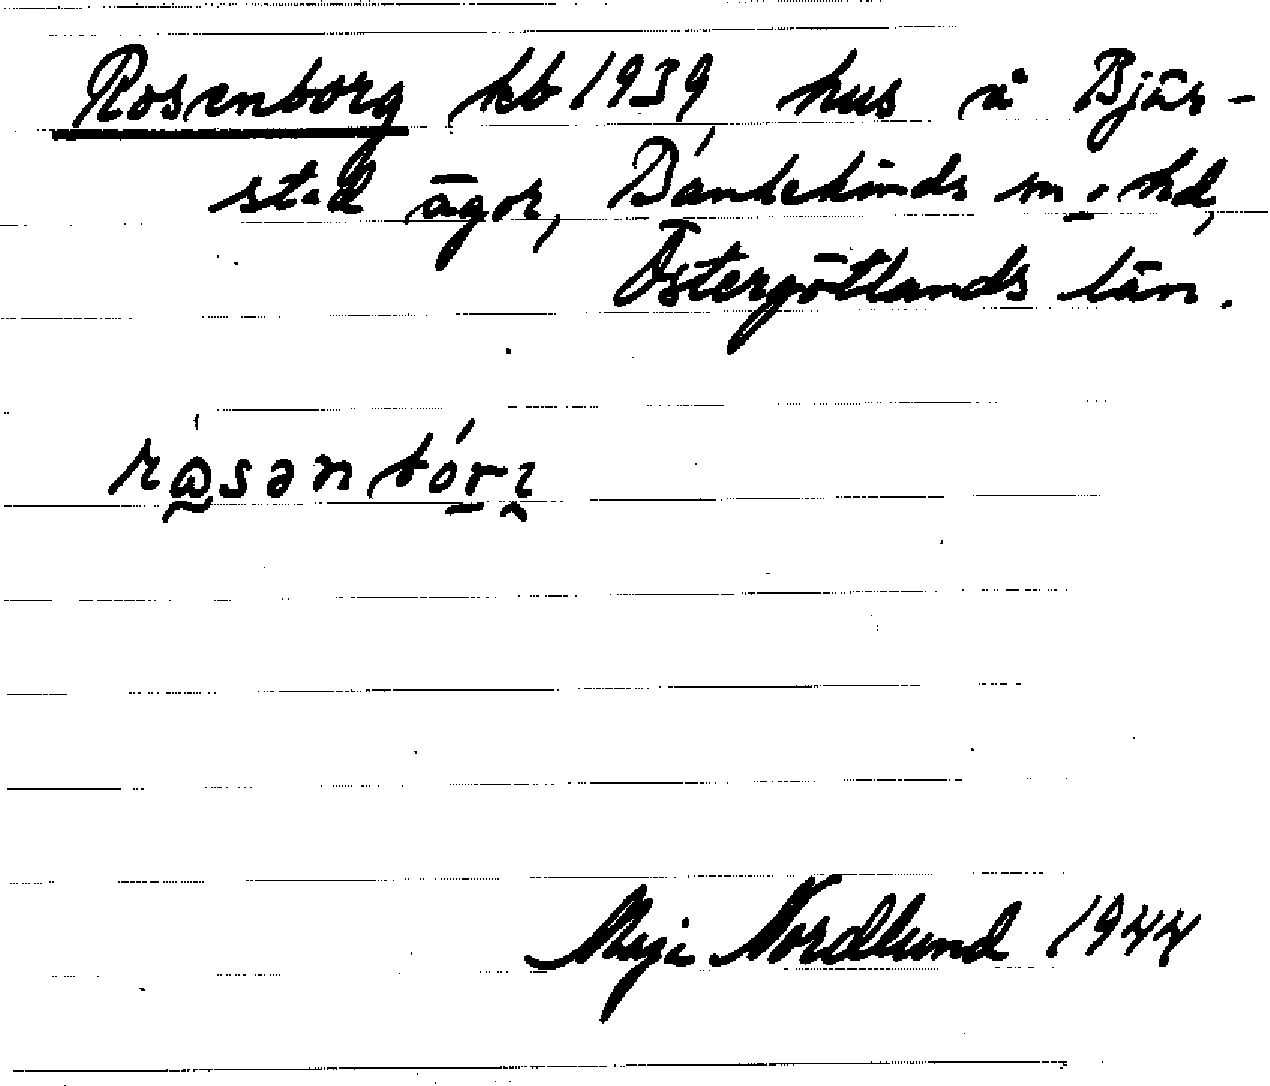 Rosenborg kb 1939 hus å Bjär-
stad ägor, Bankekinds sn o hd,
Östergötlands län.
rɷsənbórʒ
Maja Nordlund 1944